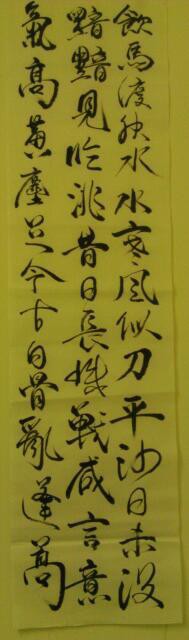 飲馬渡秋水水寒風似刀平沙日未没
黯黯見臨洮昔日長城戰咸言意
氣高黄塵足今古白骨亂蓬蒿